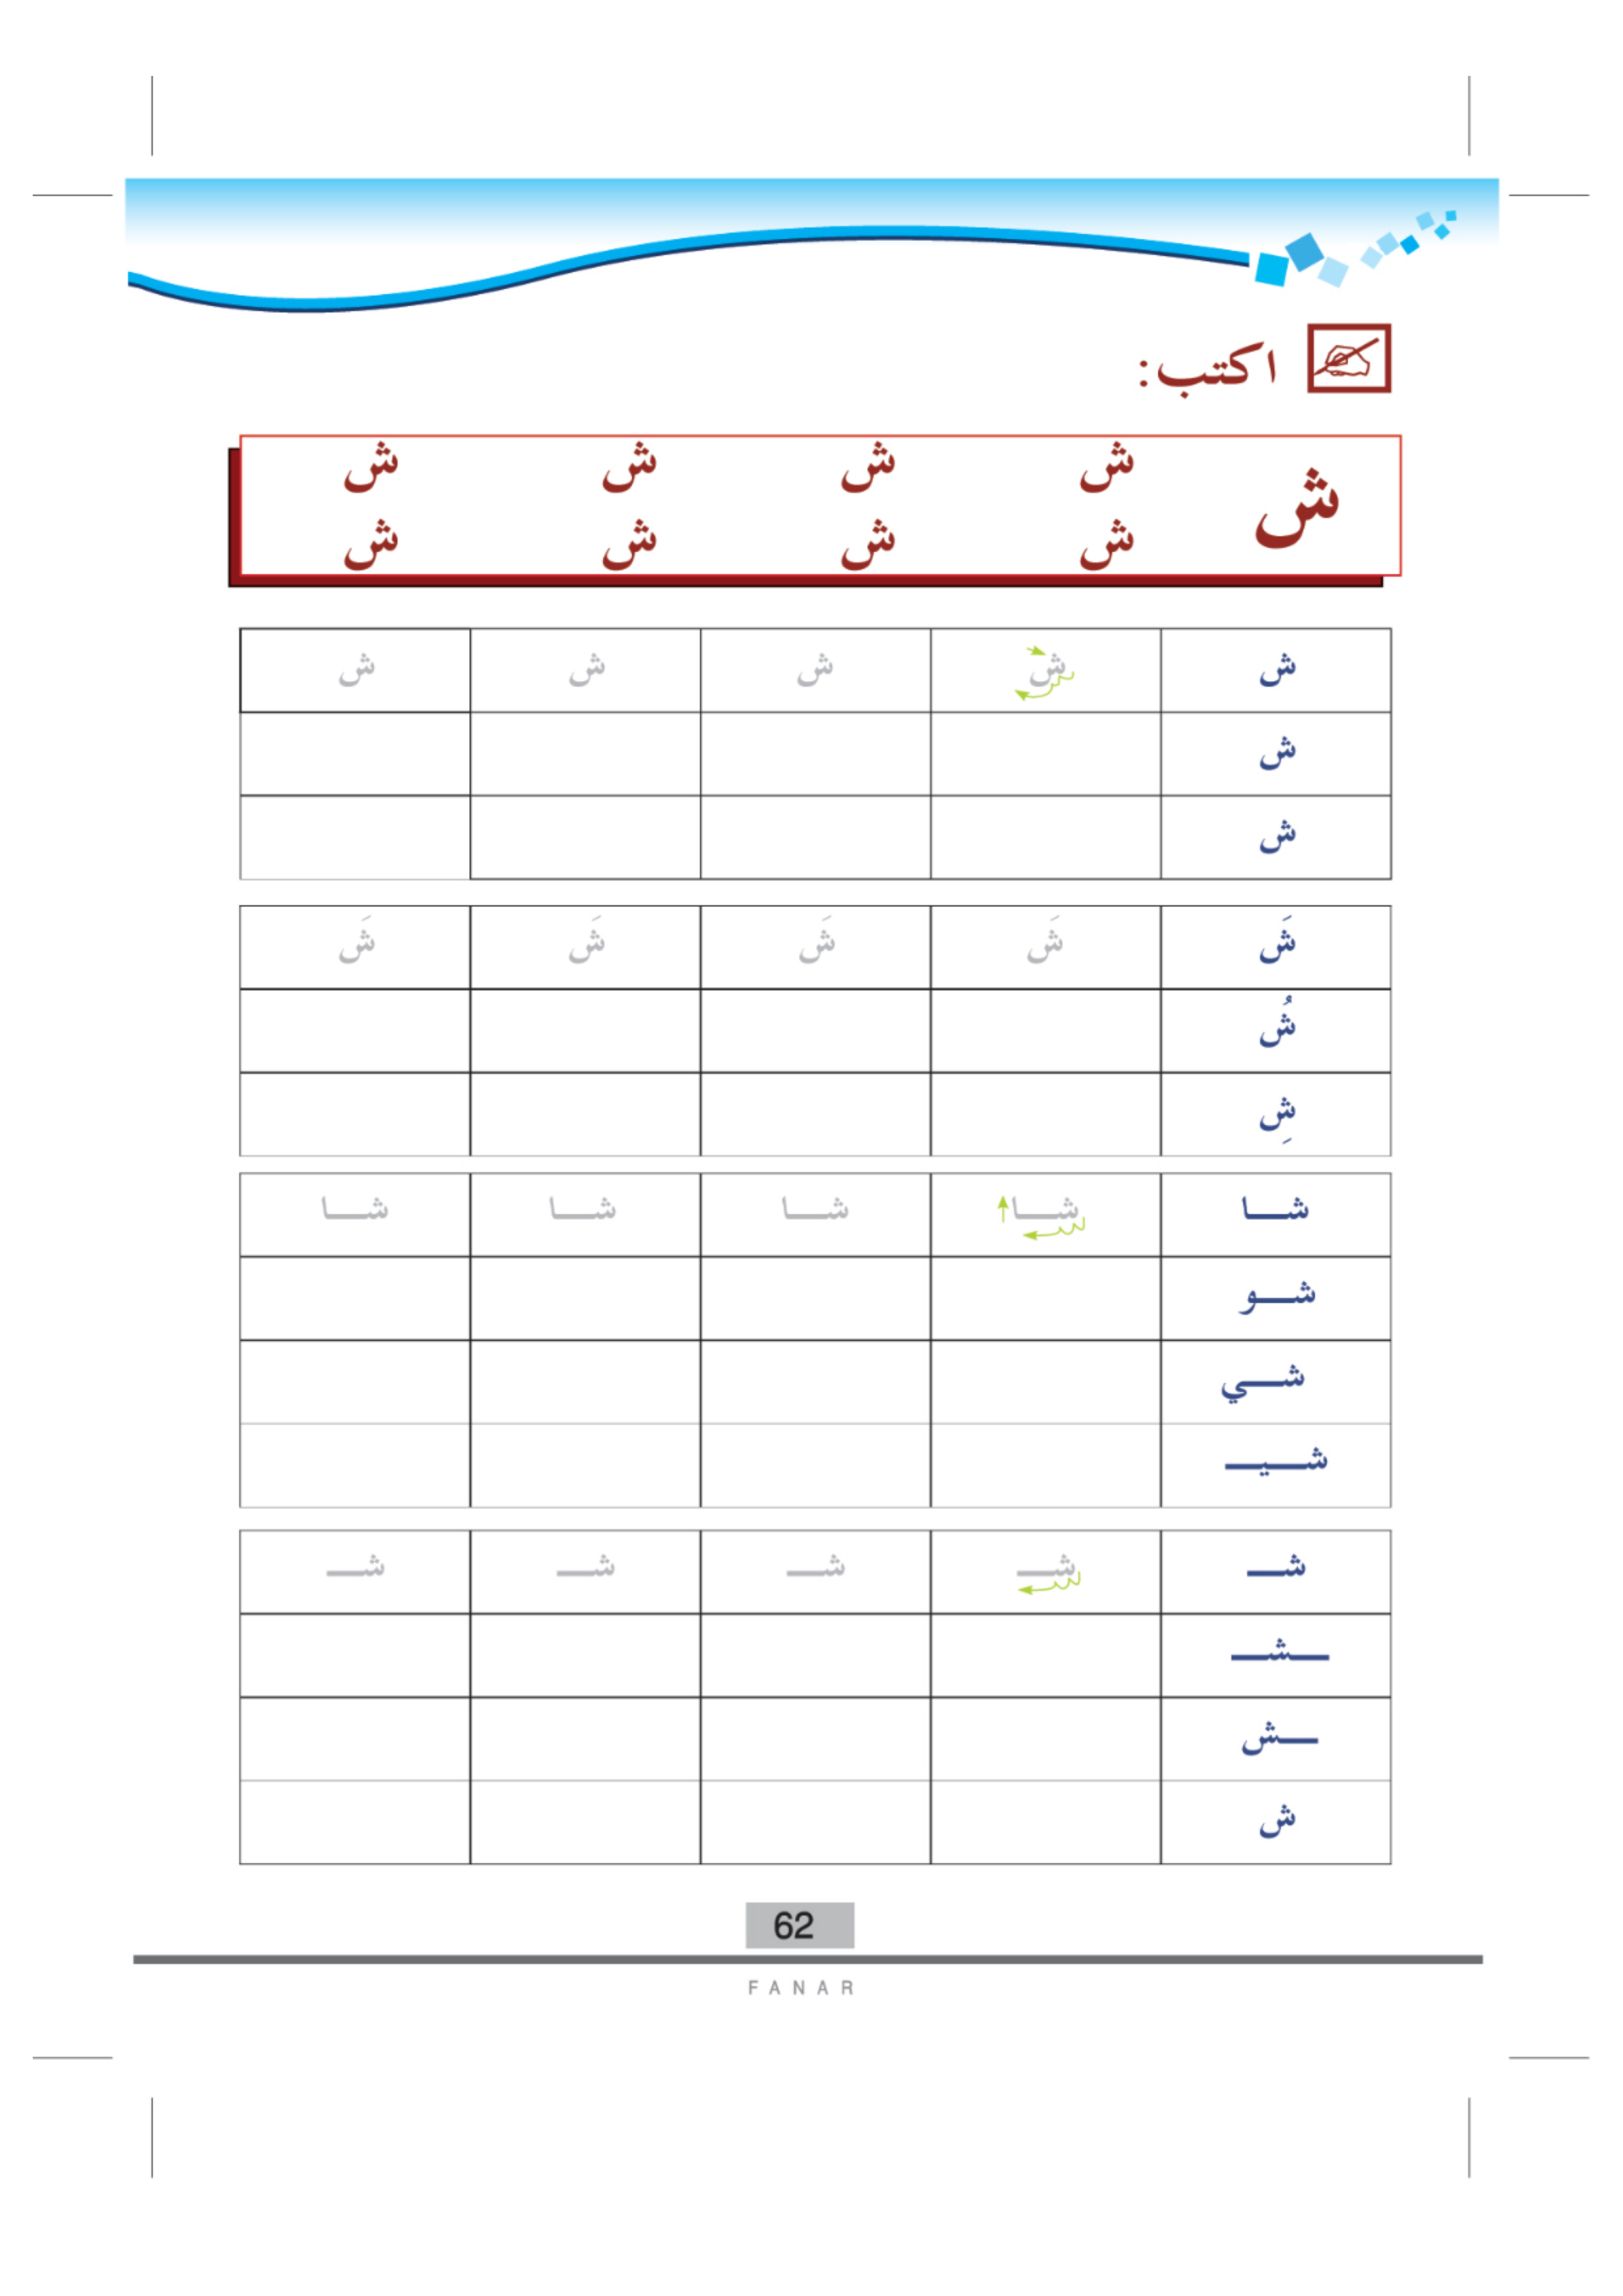 اكتب:
ش ش ش ش ش
ش ش ش ش
ش ش ش ش ش
ش
ش
شَ شَ شَ شَ شَ
شُ
شِ
شـــا شـــا شـــا شـــا شـــا
شـــو
شـــي
شـــيـــ
شـــ شـــ شـــ شـــ شـــ
ـــشـــ
ـــش
ش
62
FANAR